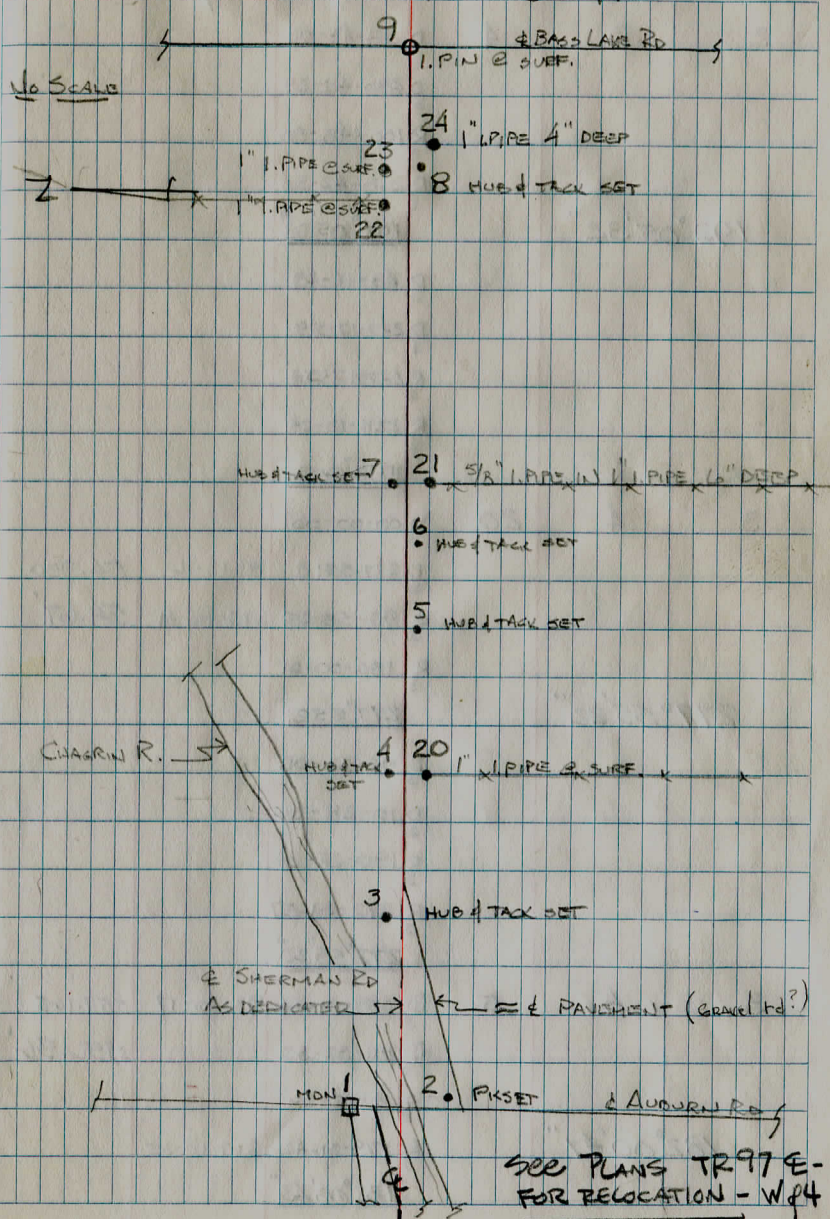 9
℄ BASS LAKE RD
I. PIN @ SURF.
NO SCALE
24
1" I.PIPE 4" DEEP
23
1" I. PIPE @ SURF.
8 HUB & TACK SET
Z
1" I. PIPE @ SURF.
22
HUB & TACK SET 7
21
5/8" I.PIPE IN 1" I.PIPE 6" DEEP
6
HUB & TACK SET
5
HUB & TACK SET
CHAGRIN R.
4
HUB & TACK
SET
20
1" I.PIPE @ SURF.
3
HUB & TACK SET
℄ SHERMAN RD
AS DEDICATED
= ℄ PAVEMENT (Gravel rd?)
MON 1
2
PK SET
℄ AUBURN RD
℄
SEE PLANS TR 97 E-
FOR RELOCATION - W of 4